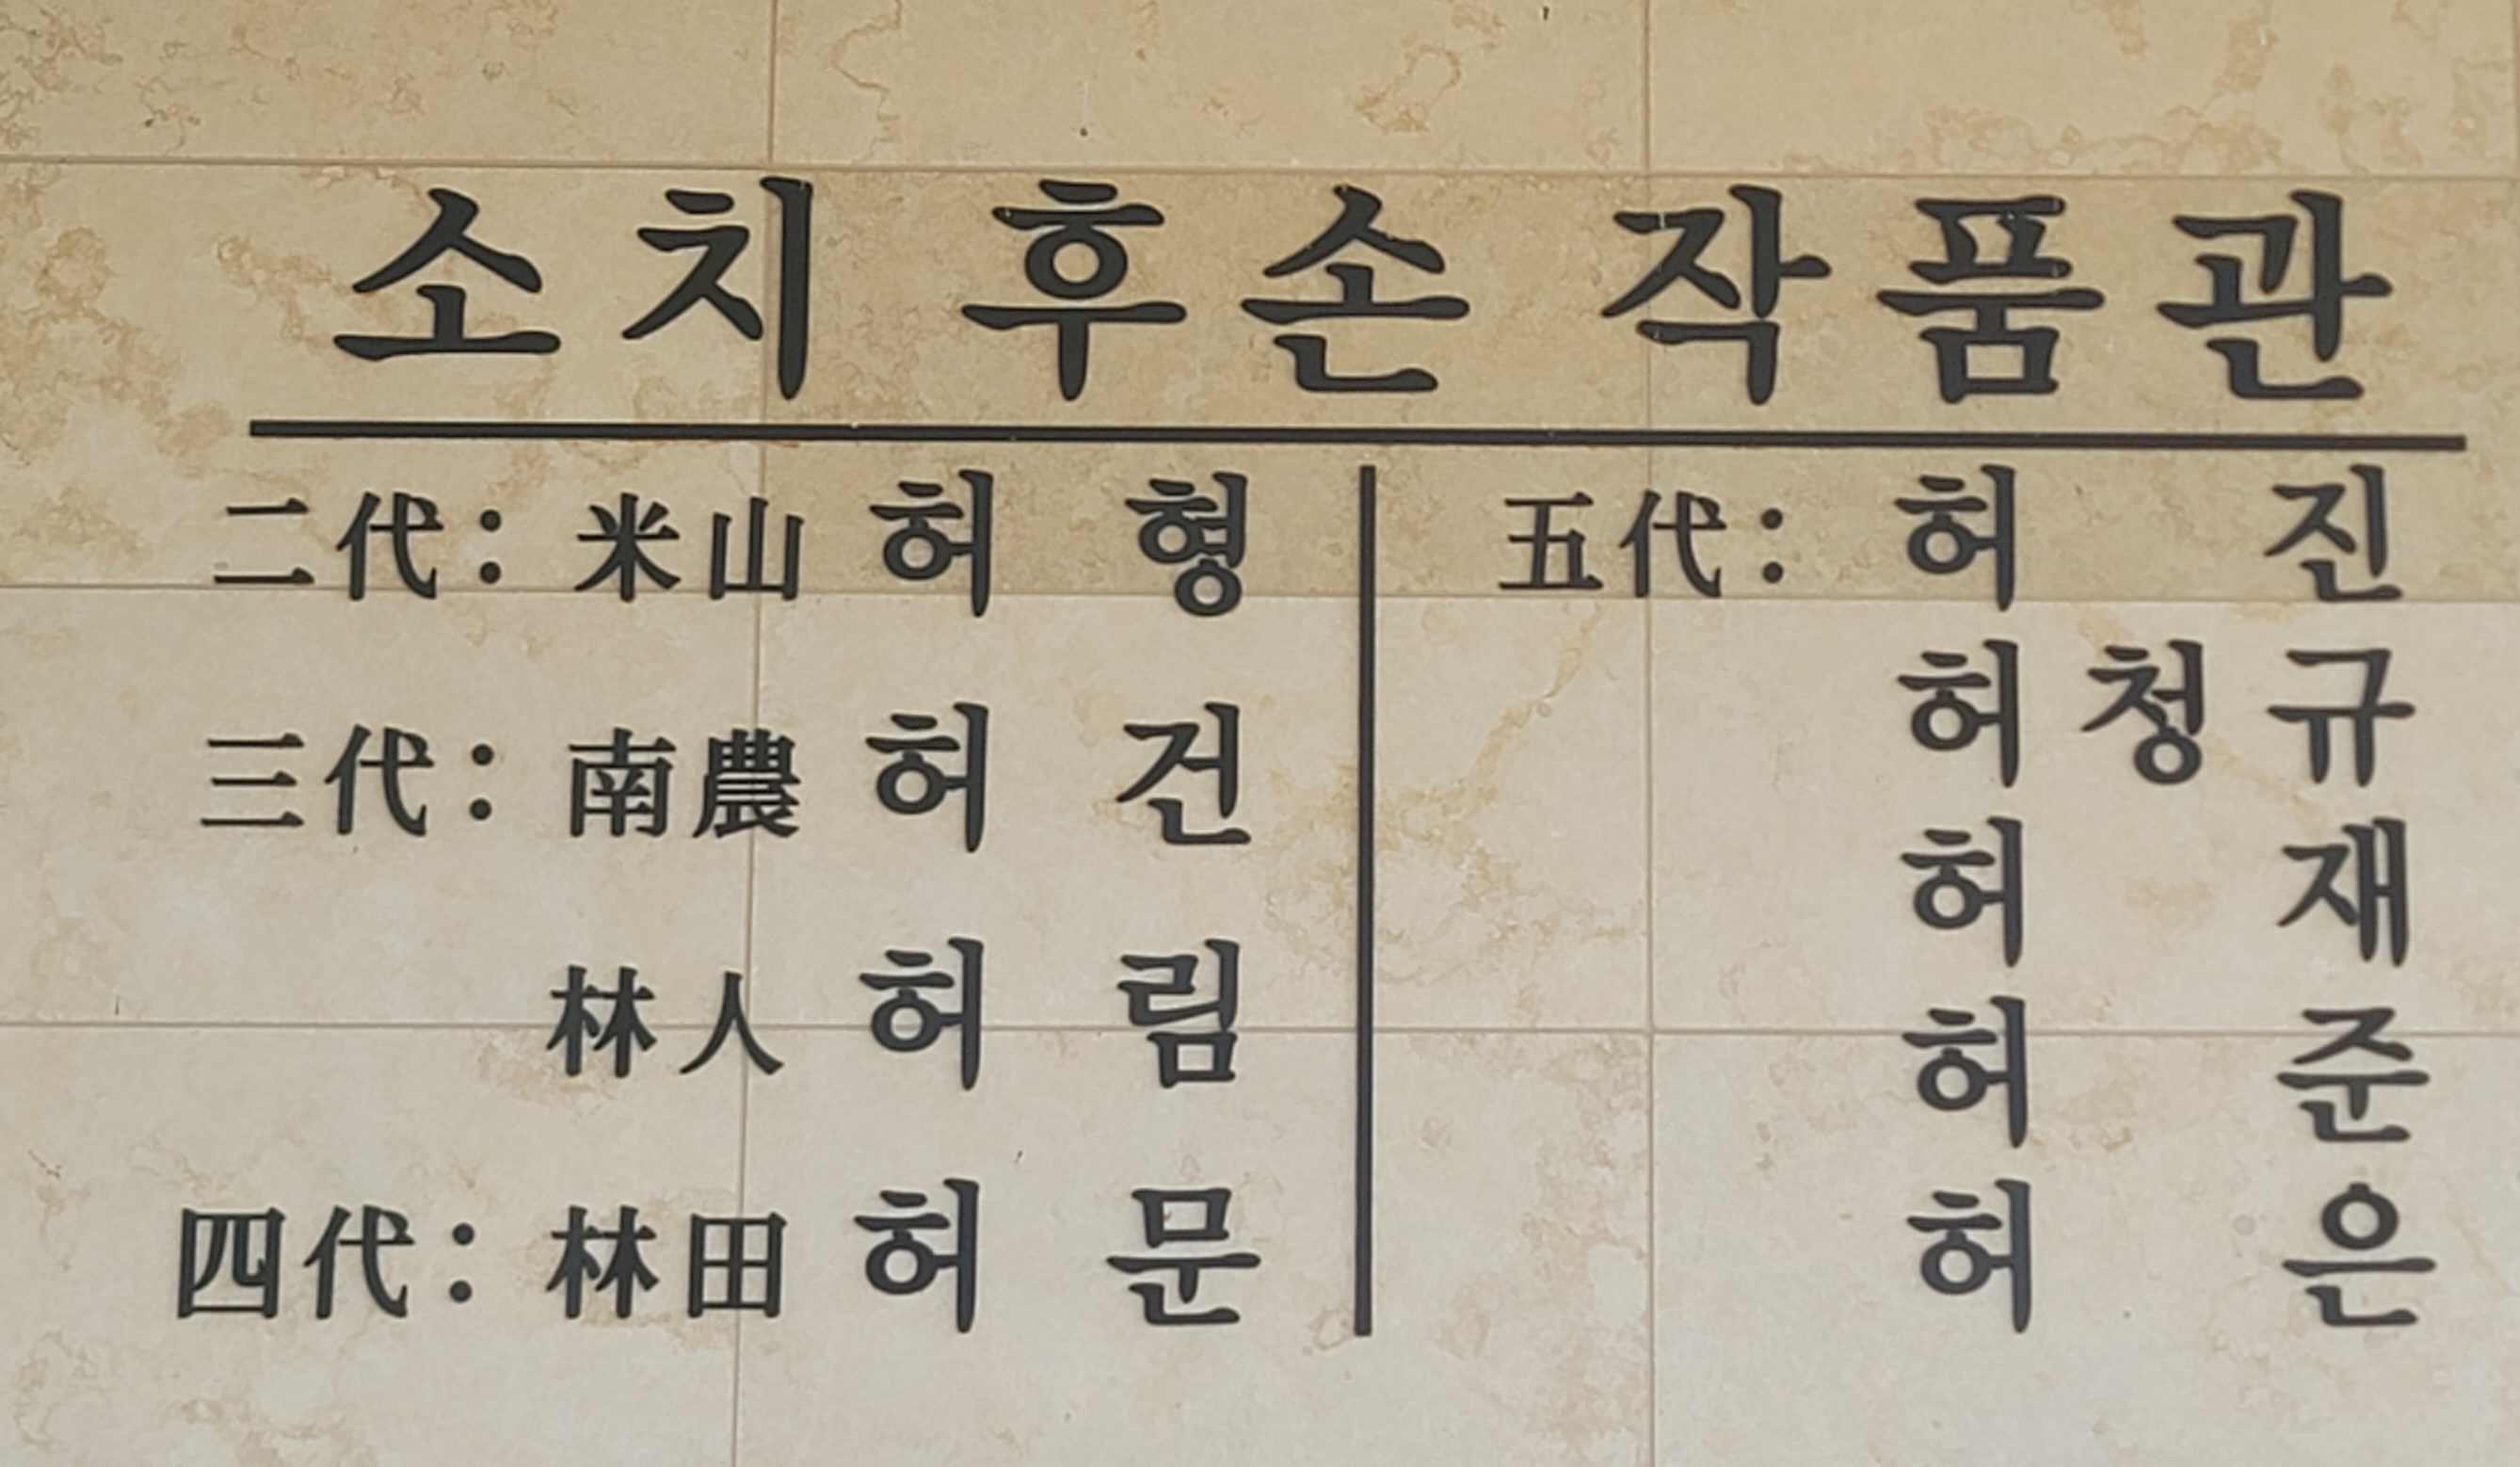 소치 후손 작품관
二代: 米山 허 형
三代: 南農 허 건
林人 허 림
四代: 林田 허 문
五代: 허 진
허청규
허 재
허 준
허 은